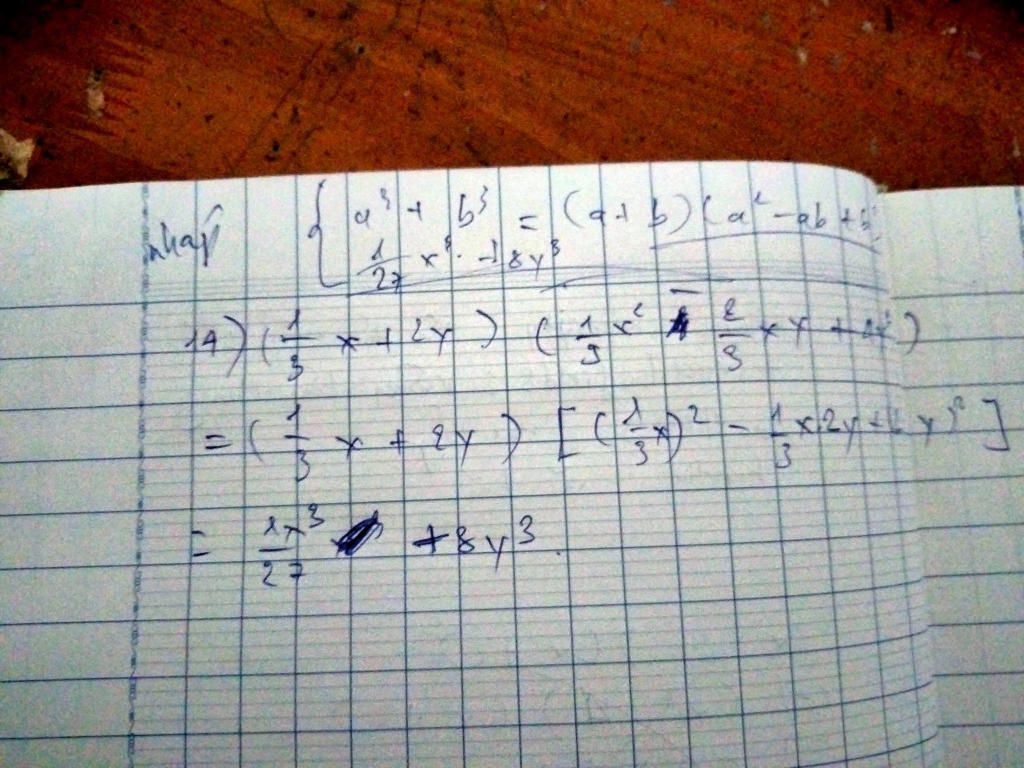 nháp { a³ + b³ = (a + b)(a² - ab + b²)
1/27 x³ + 8y³
14) (1/3 x + 2y) (1/9 x² - 2/3 xy + 4y²)
= (1/3 x + 2y) [(1/3 x)² - 1/3 x 2y + (2y)²]
= 1x³/27 + 8y³.